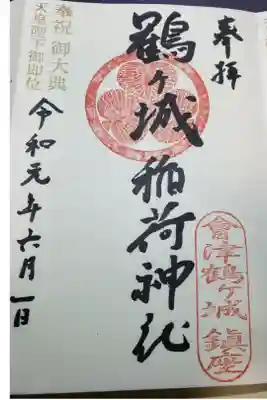 奉拝
鶴ヶ城稲荷神社
會津鶴ヶ城鎮座
奉祝 御大典
天皇陛下御即位
令和元年六月一日